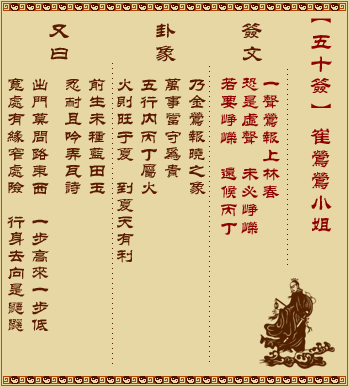 【五十簽】 崔鶯鶯小姐
簽文
一聲鶯報上林春
恐是虛聲 未必崢嶸
若要崢嶸 還候丙丁
卦象
乃金鶯報曉之象
萬事當守爲貴
五行内丙丁屬火
火則旺于夏 到夏天有利
又曰
前生未種藍田玉
忍耐且吟弄瓦詩
出門莫問路東西 一步高來一步低
寬處有緣窄處險 行身去向是